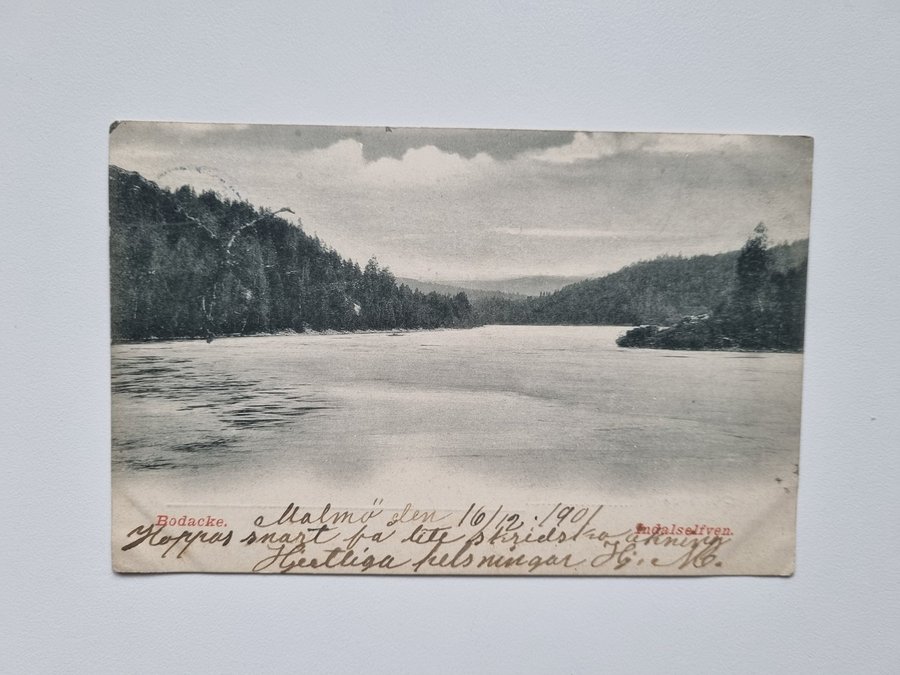 Bodacke. Malmö den 16/12. 1901 Indalselfven.
Hoppas snart få lite skridsko åkning
Hjertliga helsningar Hj. M.